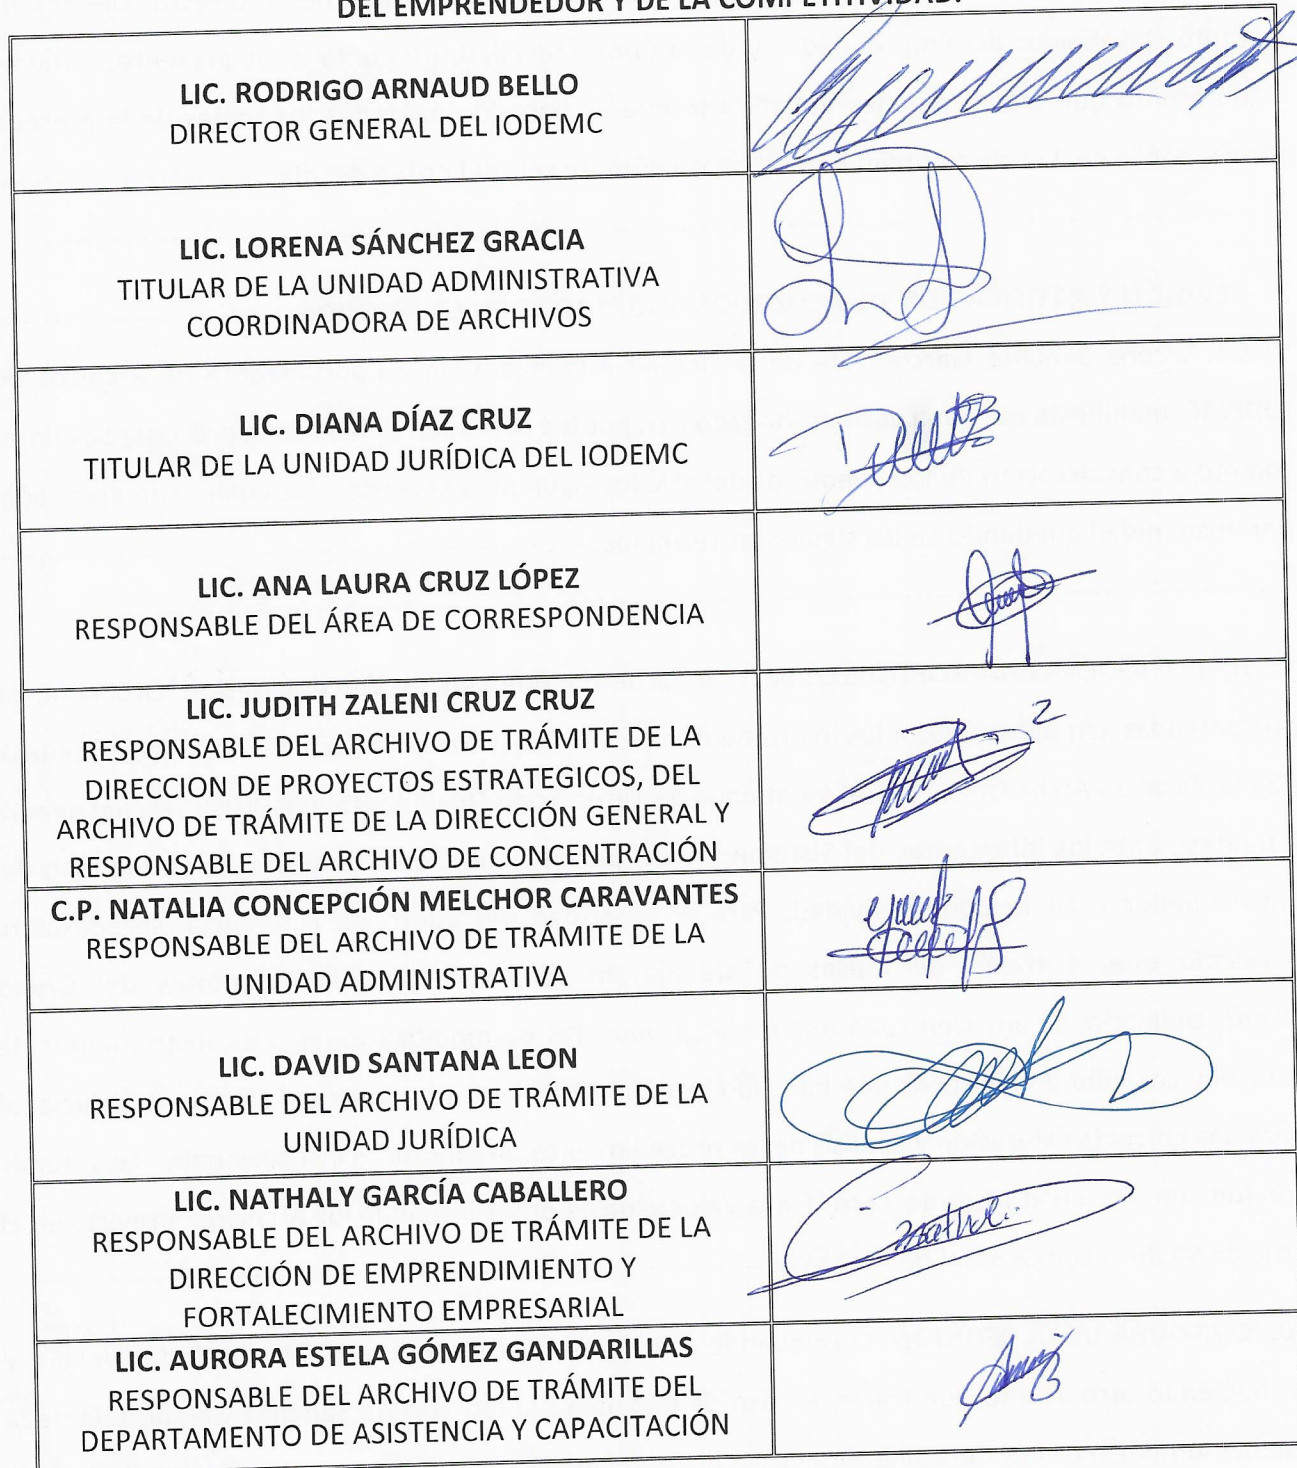 DEL EMPRENDEDOR Y DE LA COMPETITIVIDAD.
LIC. RODRIGO ARNAUD BELLO
DIRECTOR GENERAL DEL IODEMC
LIC. LORENA SÁNCHEZ GRACIA
TITULAR DE LA UNIDAD ADMINISTRATIVA
COORDINADORA DE ARCHIVOS
LIC. DIANA DÍAZ CRUZ
TITULAR DE LA UNIDAD JURÍDICA DEL IODEMC
LIC. ANA LAURA CRUZ LÓPEZ
RESPONSABLE DEL ÁREA DE CORRESPONDENCIA
LIC. JUDITH ZALENI CRUZ CRUZ
RESPONSABLE DEL ARCHIVO DE TRÁMITE DE LA
DIRECCION DE PROYECTOS ESTRATEGICOS, DEL
ARCHIVO DE TRÁMITE DE LA DIRECCIÓN GENERAL Y
RESPONSABLE DEL ARCHIVO DE CONCENTRACIÓN
C.P. NATALIA CONCEPCIÓN MELCHOR CARAVANTES
RESPONSABLE DEL ARCHIVO DE TRÁMITE DE LA
UNIDAD ADMINISTRATIVA
LIC. DAVID SANTANA LEON
RESPONSABLE DEL ARCHIVO DE TRÁMITE DE LA
UNIDAD JURÍDICA
LIC. NATHALY GARCÍA CABALLERO
RESPONSABLE DEL ARCHIVO DE TRÁMITE DE LA
DIRECCIÓN DE EMPRENDIMIENTO Y
FORTALECIMIENTO EMPRESARIAL
LIC. AURORA ESTELA GÓMEZ GANDARILLAS
RESPONSABLE DEL ARCHIVO DE TRÁMITE DEL
DEPARTAMENTO DE ASISTENCIA Y CAPACITACIÓN